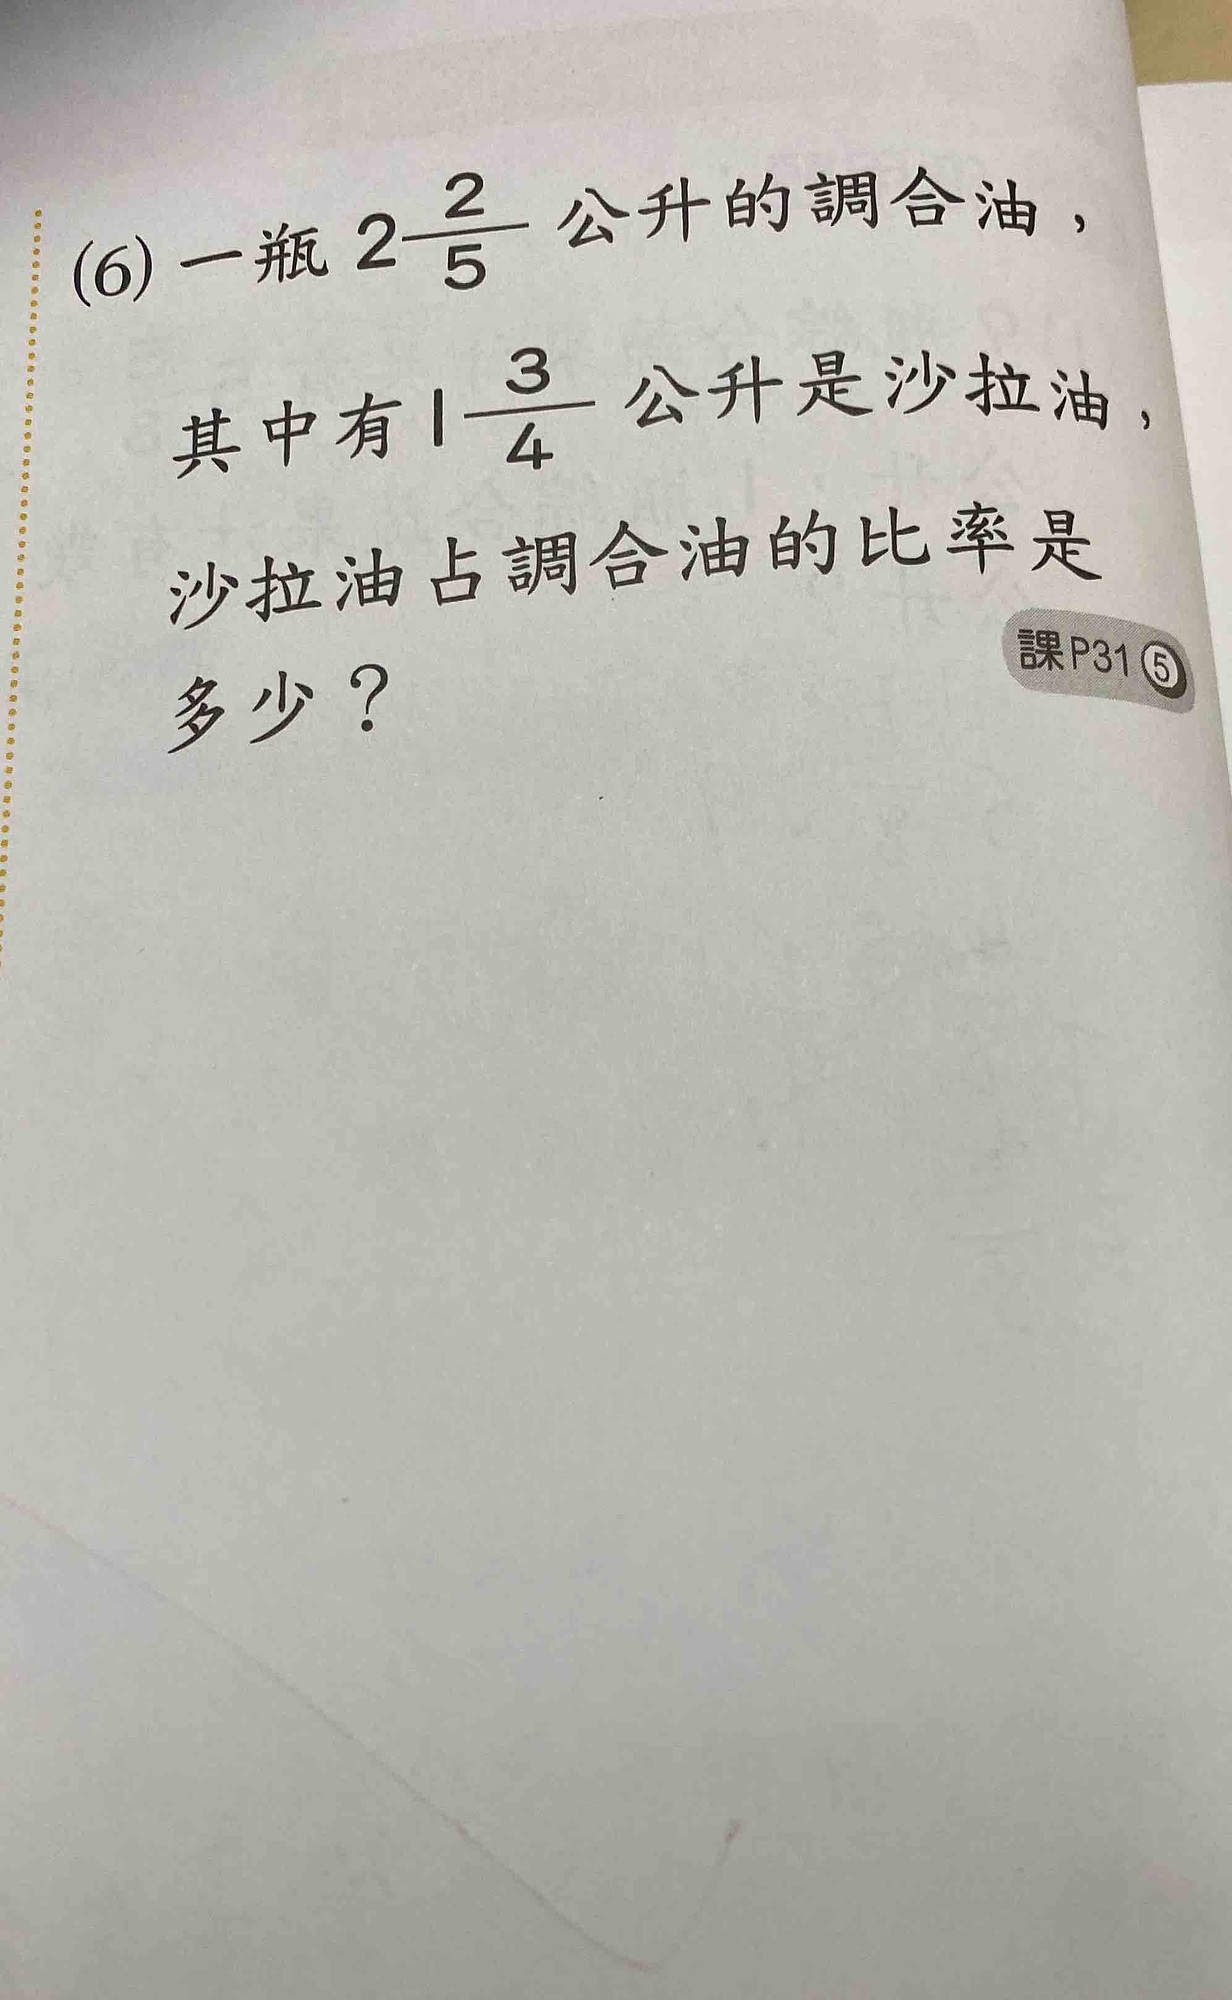 (6) 一瓶 2 2/5 公升的調合油，
其中有 1 3/4 公升是沙拉油，
沙拉油占調合油的比率是
多少？
課P31 ⑤